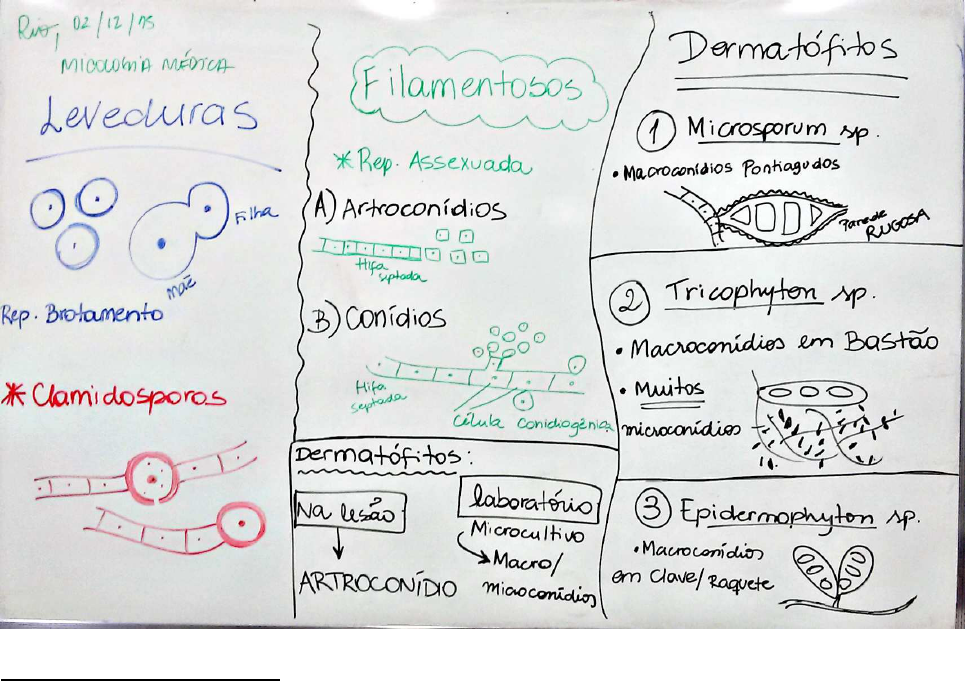 Rio, 02/12/15
MICOLOGIA MÉDICA
Leveduras
Filha
mãe
Rep. Brotamento
* Clamidosporos
Filamentosos
* Rep. Assexuada
A) Artroconídios
Hifa
septada
B) Conídios
Hifa
septada
Célula conidiogênica
Dermatófitos:
Na lesão
ARTROCONÍDIO
laboratório
Microcultivo
Macro/
microconídios
Dermatófitos
1 Microsporum sp.
• Macroconídios Pontiagudos
Parede
RUGOSA
2 Tricophyton sp.
• Macroconídios em Bastão
• Muitos
microconídios
3 Epidermophyton sp.
• Macroconídios
em Clave/Raquete